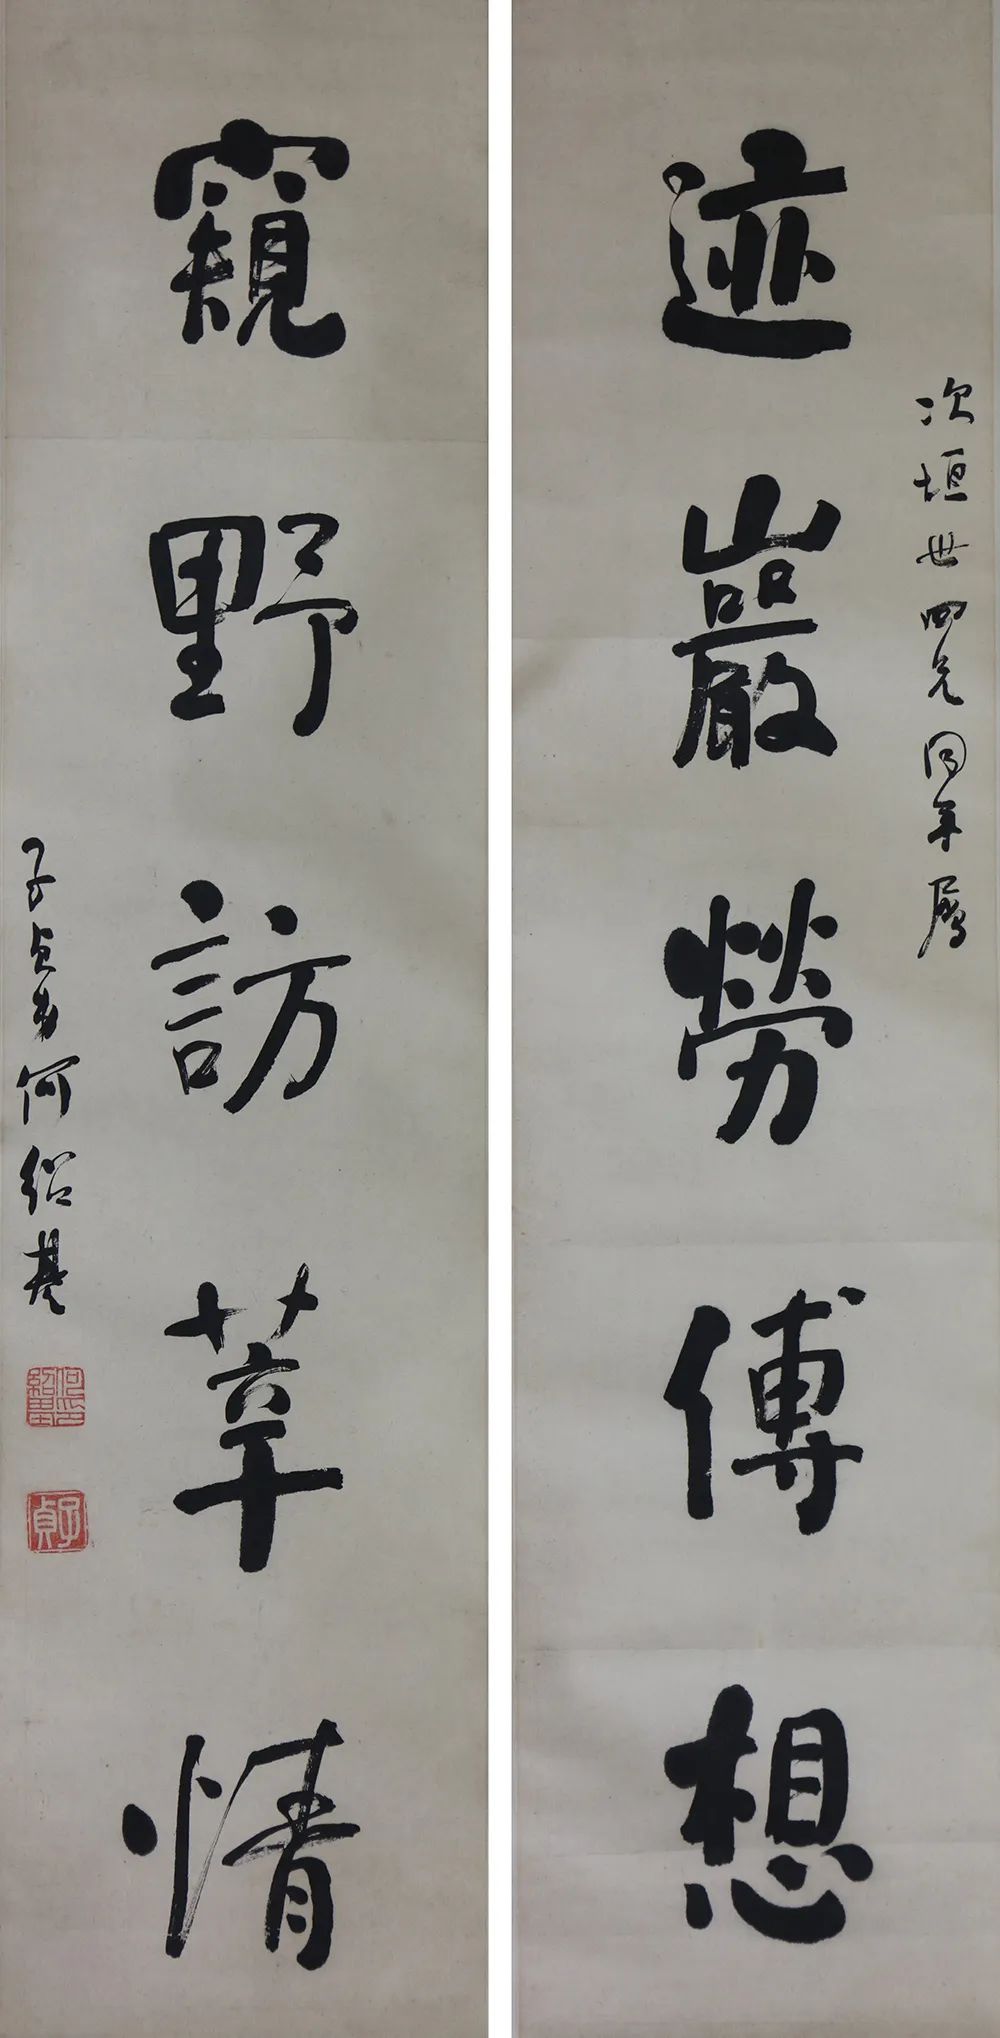 次垣世四兄同年屬
迹巖勞傅想
窺野訪莘情
子貞弟何紹基
何紹基印
子貞